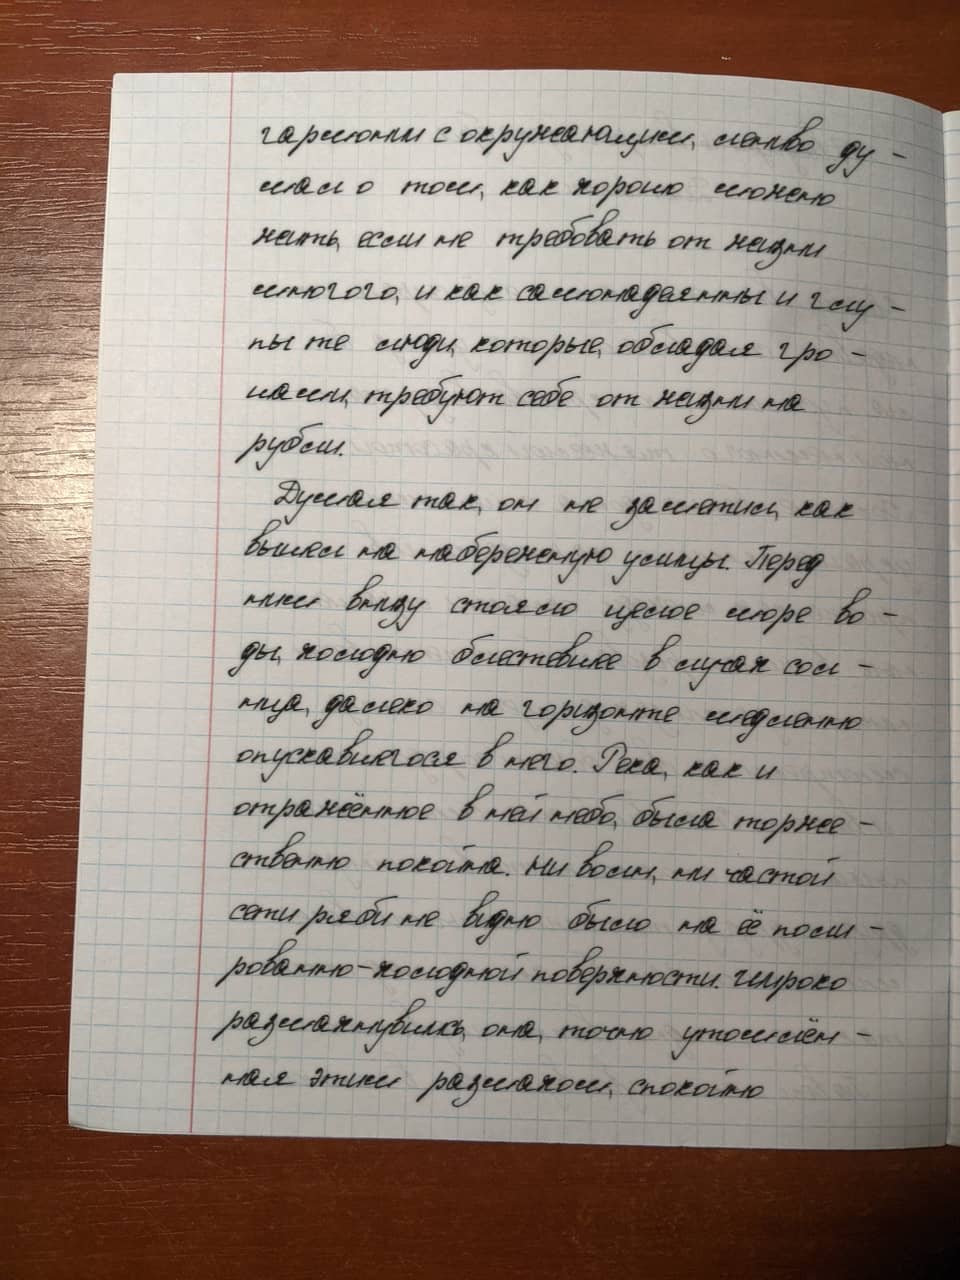 гармонии с окружающим, лениво ду-
мал о том, как хорошо можно
жить, если не требовать от жизни
многого, и как самонадеянны и глу-
пы те люди, которые, обладая гро-
шами, требуют себе от жизни на
рубли.
Думая так, он не заметил, как
вышел на набережную улицы. Перед
ним внизу стояло целое море во-
ды, холодно блестевшее в лучах сол-
нца, далеко на горизонте медленно
опускавшегося в него. Река, как и
отражённое в ней небо, была торже-
ственно покойна. Ни волн, ни частой
сети ряби не видно было на её поли-
рованно-холодной поверхности. Широко
размахнувшись, она, точно утомлён-
ная этим размахом, спокойно